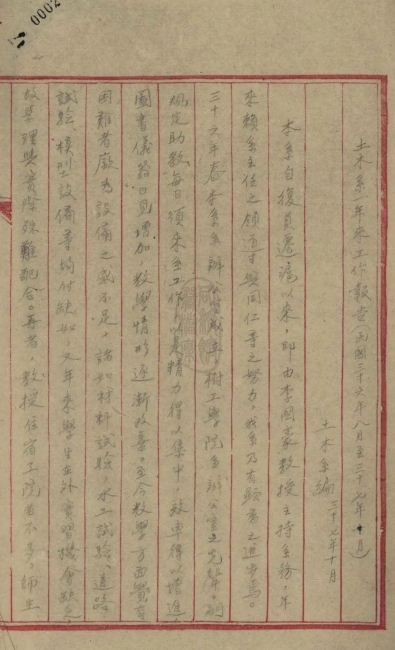 0002
土木系一年來工作報告（民國三十六年八月至三十七年十月）
土木系編 三十七年十月
本系自復員遷漢以來，即由李國家教授主持系務，年
來賴系主任之領導與同仁等之努力，我系乃有顯著之進步焉。
三十六年春本系系辦公室成立，樹工學院系辦公室之先聲。嗣
規定助教每日須來室工作，以是精力得以集中，效率得以增進
圖書儀器日見增加，教學情形逐漸改善。至今教學方面實有
困難者厥為設備之感不足，諸如材料試驗、水工試驗、道路
試驗、模型設備等均付缺如，又年來學生在外實習機會缺乏
故學理與實際殊難配合。再者，教授住宿工院者不多，師生